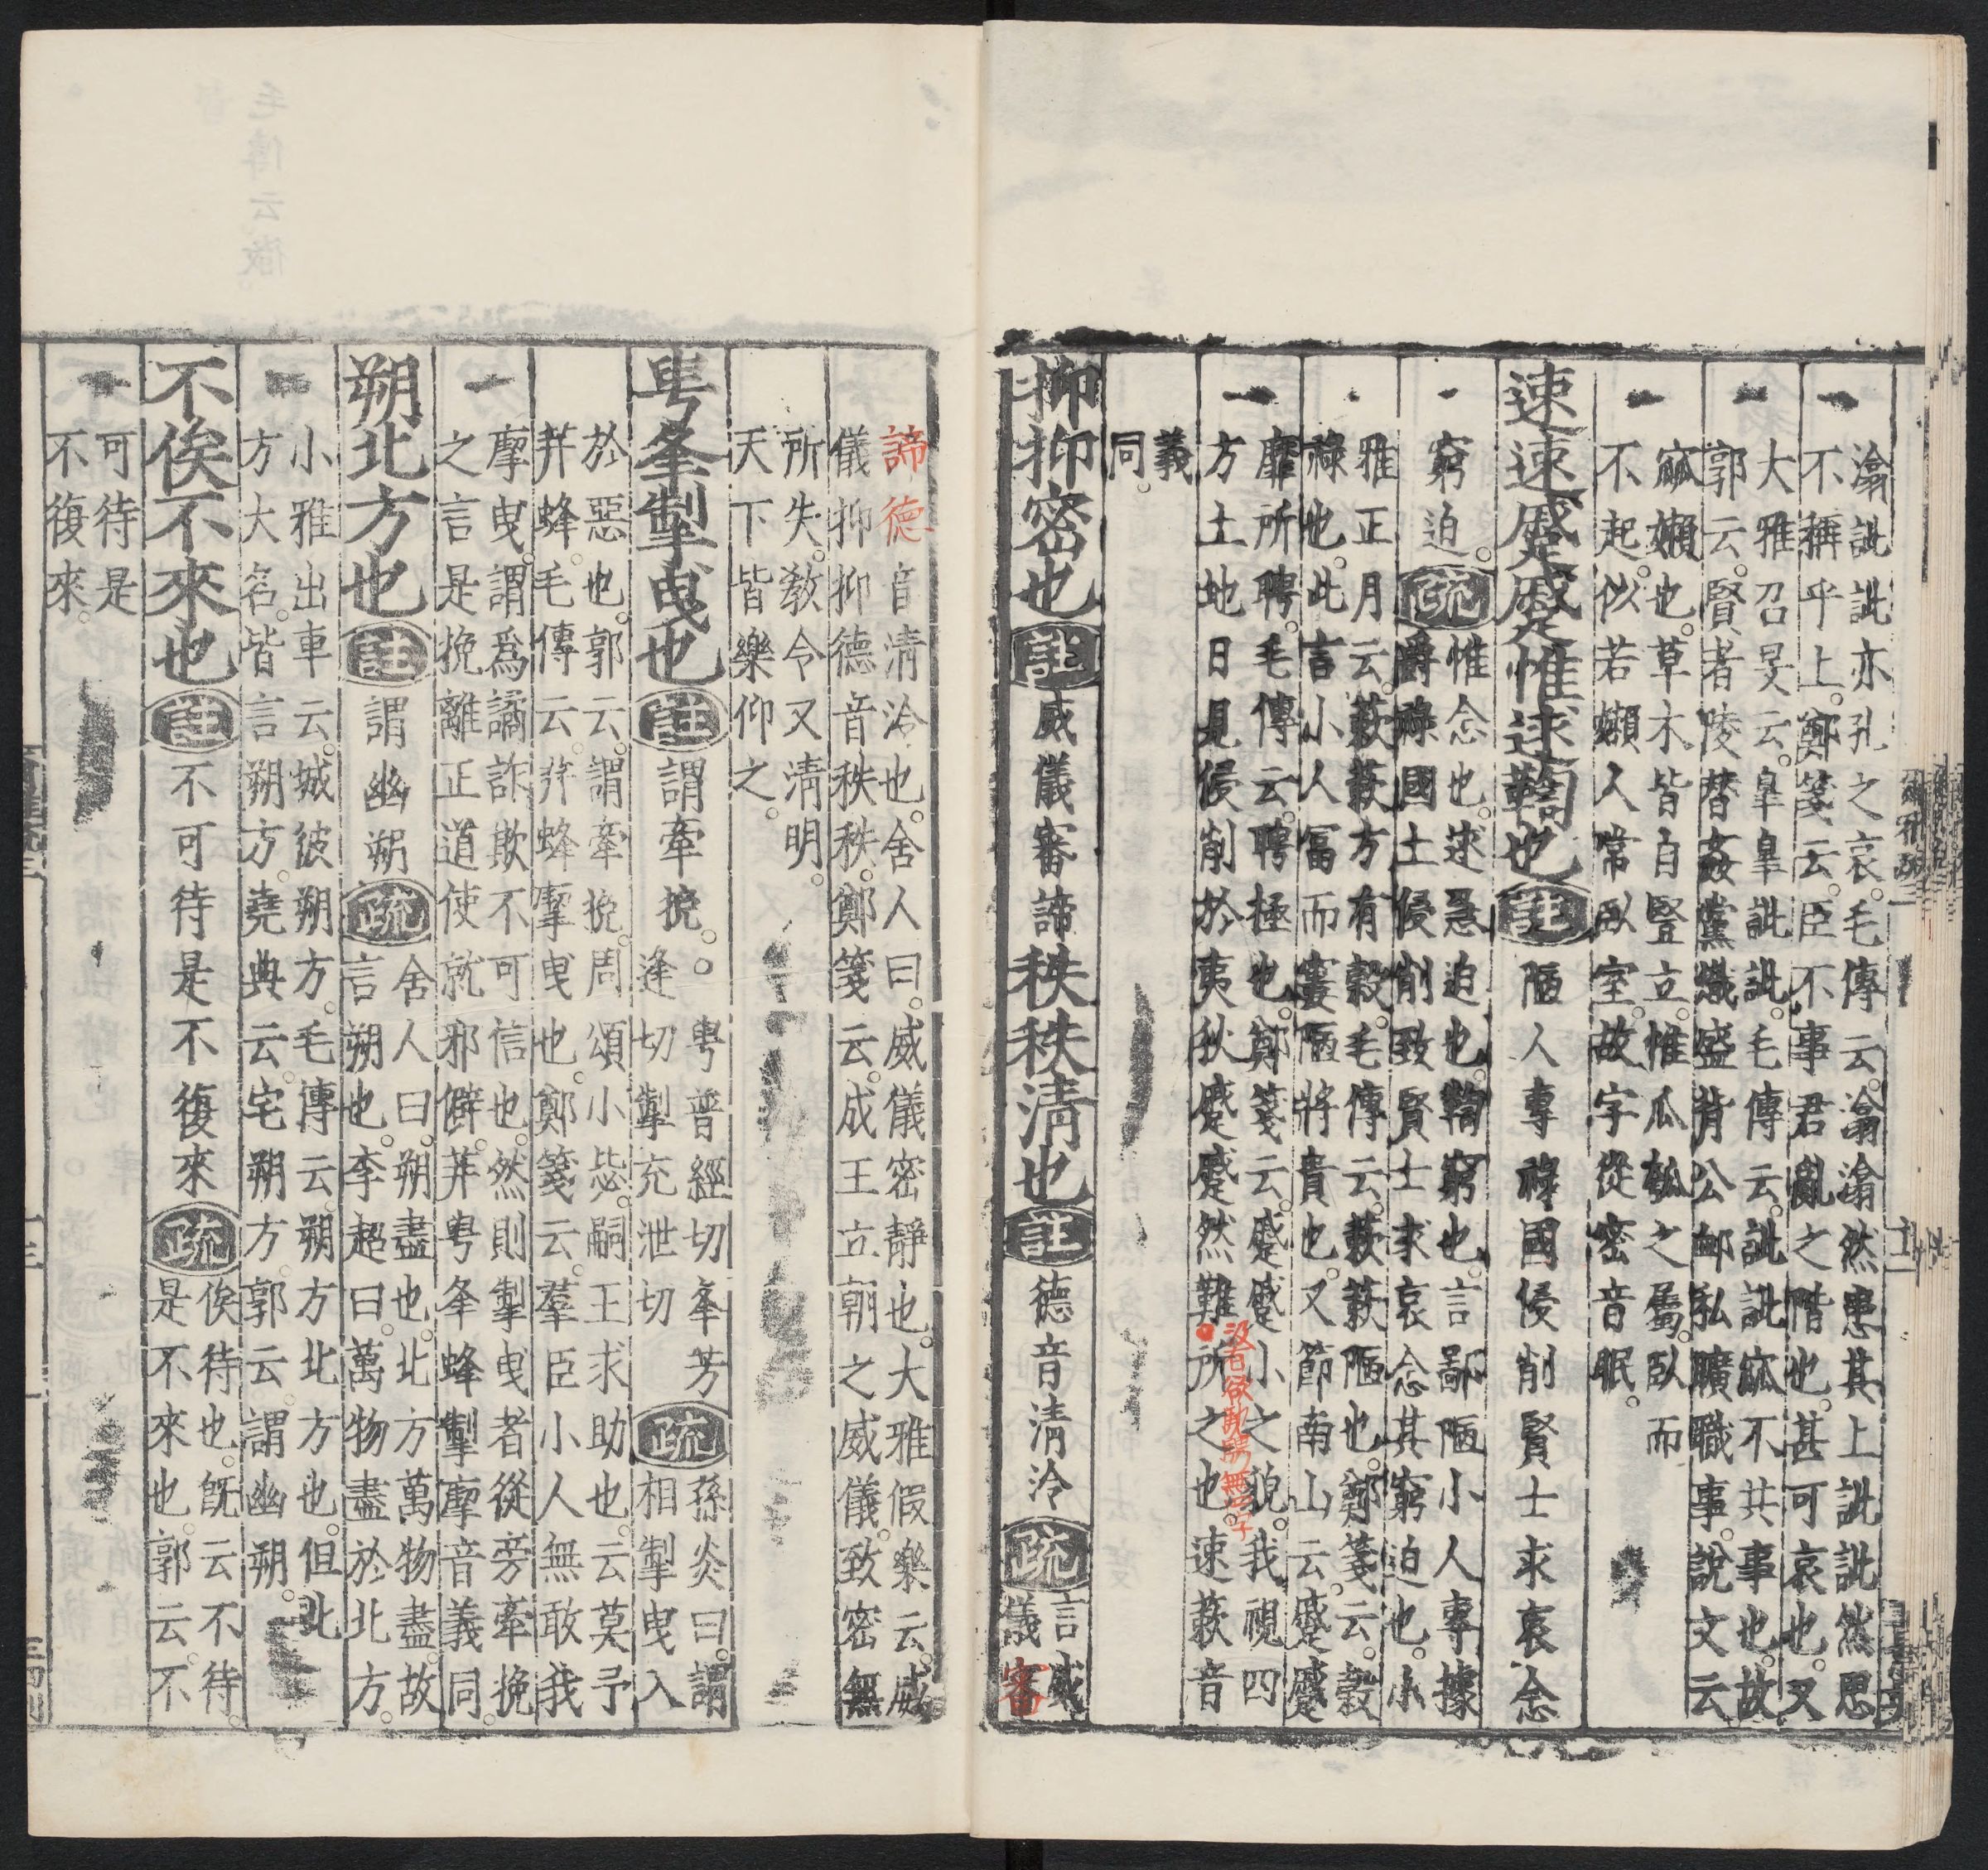 潝訿訿亦孔之哀。毛傳云。潝潝然患其上訿訿然思
不稱乎上。鄭箋云。臣不事君亂之階也。甚可哀也。又
大雅召旻云。皐皐訿訿。毛傳云。訿訿窳不共事也。故
郭云。賢者陵替姦黨熾盛背公䘏私曠職事。說文云
窳嬾也。草木皆自豎立。惟瓜瓠之屬。臥而
不起。似若嬾人常臥室。故字從宀音眠。
速速蹙蹙惟逑鞫也註陋人專祿國侵削賢士求哀念
窮迫。疏
惟念也。逑急迫也。鞫窮也。言鄙陋小人專據
爵祿國土侵削致賢士求哀念其窮迫也。小
雅正月云。蔌蔌方有穀。毛傳云。蔌蔌陋也。鄭箋云。穀
祿也。此言小人富而窶陋將貴也。又節南山云。蹙蹙
靡所騁。毛傳云。騁極也。鄭箋云。蹙蹙小之貌。我視四
方土地日見侵削於夷狄蹙蹙然難所之也。速蔌音
義
同。
抑抑密也註威儀審諦秩秩清也註德音清泠疏
言威
儀審
諦德音清泠也。舍人曰。威儀密靜也。大雅假樂云。威
儀抑抑德音秩秩。鄭箋云。成王立朝之威儀。致密無
所失。敎令又清明。
天下皆樂仰之。
甹夆掣曳也註謂牽挽。
甹普經切夆芳
逢切掣充泄切
疏
孫炎曰。謂
相掣曳入
於惡也。郭云。謂牽挽。周頌小毖。嗣王求助也。云莫予
荓蜂。毛傳云。荓蜂摩曳也。鄭箋云。羣臣小人無敢我
摩曳。謂爲譎詐欺不可信也。然則掣曳者從旁牽挽
之言是挽離正道使就邪僻。荓甹夆蜂掣摩音義同。
朔北方也註謂幽朔疏
舍人曰。朔盡也。北方萬物盡。故
言朔也。李超曰。萬物盡於北方。
小雅出車云。城彼朔方。毛傳云。朔方北方也。但北
方大名。皆言朔方。堯典云。宅朔方。郭云。謂幽朔。
不俟不來也註不可待是不復來疏
俟待也。旣云不待。
是不來也。郭云。不
可待是
不復來。